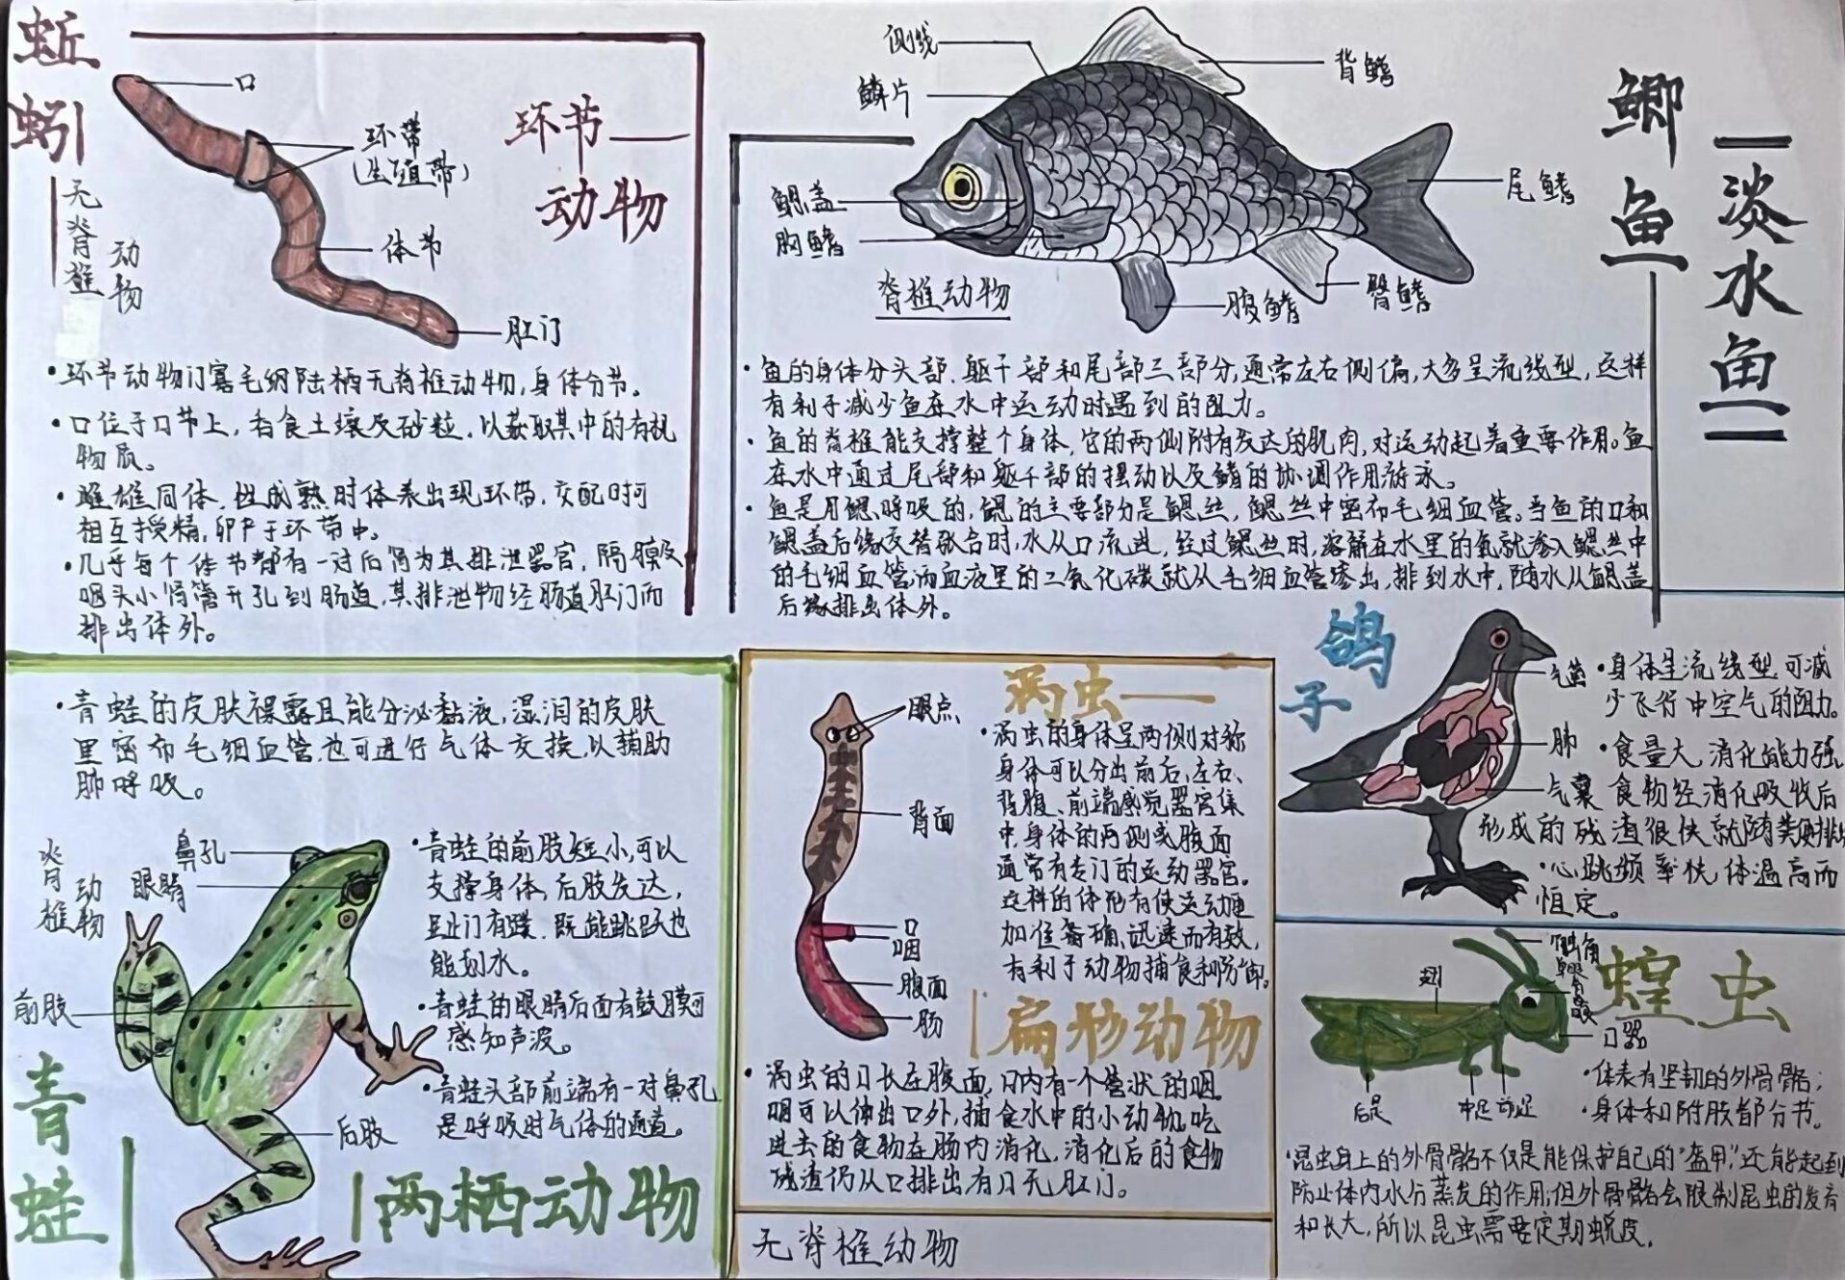 蚯蚓
无脊椎
动物
口
环带
(生殖带)
体节
肛门
环节
动物
·环节动物门寡毛纲陆栖无脊椎动物,身体分节。
·口位于口节上,吞食土壤及砂粒,以获取其中的有机
物质。
·雌雄同体,性成熟时体表出现环带,交配时可
相互授精,卵产于环带中。
·几乎每个体节都有一对后肾为其排泄器官,隔膜及
咽头小肾管开孔到肠道,其排泄物经肠道肛门而
排出体外。
侧线
鳞片
背鳍
鳃盖
胸鳍
尾鳍
腹鳍
臀鳍
脊椎动物
鲫鱼
淡水鱼
·鱼的身体分头部、躯干部和尾部三部分,通常左右侧偏,大多呈流线型,这样
有利于减少鱼在水中运动时遇到的阻力。
·鱼的脊椎能支撑整个身体,它的两侧附有发达的肌肉,对运动起着重要作用。鱼
在水中通过尾部和躯干部的摆动以及鳍的协调作用游泳。
·鱼是用鳃呼吸的,鳃的主要部分是鳃丝,鳃丝中密布毛细血管。当鱼的口和
鳃盖后缘交替张合时,水从口流进,经过鳃丝时,溶解在水里的氧就渗入鳃丝中
的毛细血管而血液里的二氧化碳就从毛细血管渗出,排到水中,随水从鳃盖
后缘排出体外。
·青蛙的皮肤裸露且能分泌黏液,湿润的皮肤
里密布毛细血管也可进行气体交换,以辅助
肺呼吸。
脊椎
动物
鼻孔
眼睛
前肢
后肢
·青蛙的前肢短小,可以
支撑身体,后肢发达,
趾间有蹼,既能跳跃也
能划水。
·青蛙的眼睛后面有鼓膜可
感知声波。
·青蛙头部前端有一对鼻孔
是呼吸时气体的通道。
青蛙
两栖动物
涡虫
眼点
背面
口
咽
腹面
肠
·涡虫的身体呈两侧对称
身体可以分出前后、左右、
背腹、前端感觉器官集
中,身体的两侧或腹面
通常有专门的运动器官。
这样的体形有使运动更
加准备确、迅速而有效,
有利于动物捕食和防御。
扁形动物
·涡虫的口长在腹面,口内有一个管状的咽
咽可以伸出口外,捕食水中的小动物,吃
进去的食物在肠内消化,消化后的食物
残渣仍从口排出,有口无肛门。
无脊椎动物
鸽子
气管
肺
气囊
·身体呈流线型,可减
少飞行中空气的阻力。
·食量大,消化能力强,
食物经消化吸收后
形成的残渣很快就随粪便排出
·心跳频率快,体温高而
恒定。
蝗虫
触角
单眼
复眼
口器
翅
后足
中足
前足
·体表有坚韧的外骨骼;
·身体和附肢都分节。
·昆虫身上的外骨骼不仅是能保护自己的“盔甲”,还能起到
防止体内水分蒸发的作用;但外骨骼会限制昆虫的发育
和长大,所以昆虫需要定期蜕皮。